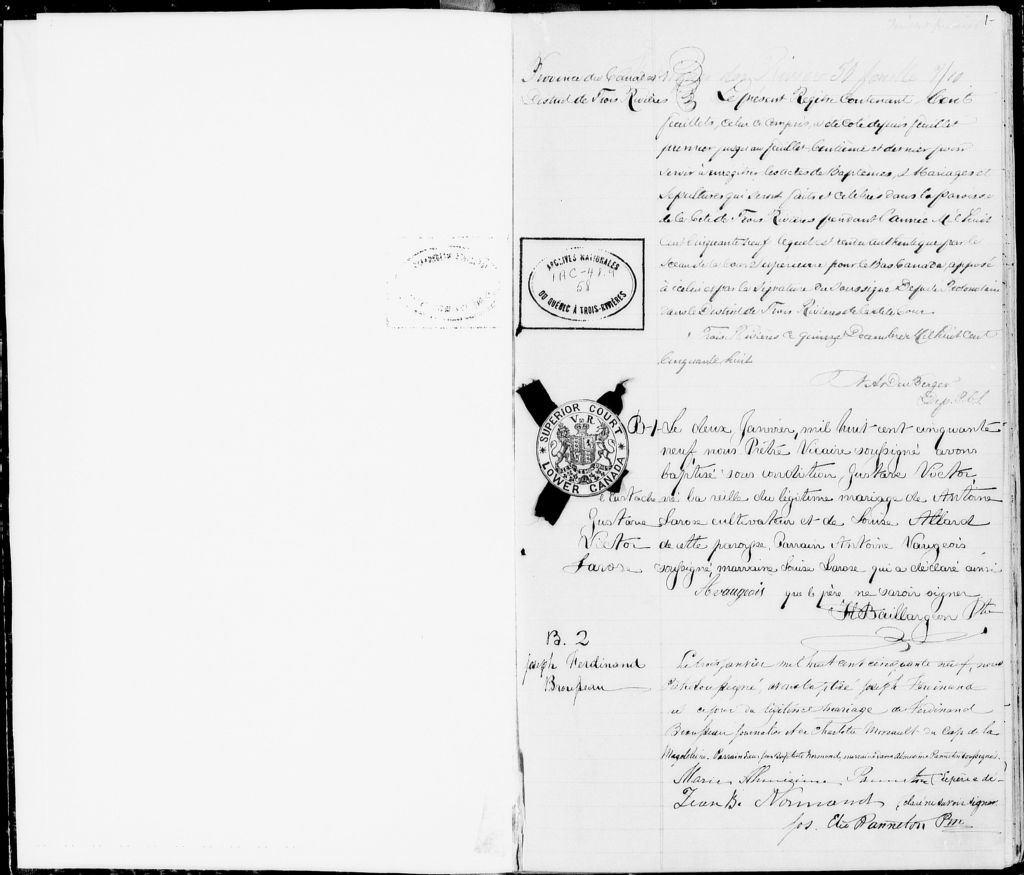 1-
Province du Canada
District de Trois Rivières
Le présent Registre Contenant Cent
feuillets, celui ci compris, et coté depuis feuillet
premier jusqu'au feuillet Centième et dernier pour
servir à enregistrer les actes de Baptêmes, Mariages et
Sepultures qui seront faits et célébrés dans la paroisse
de la Cité de Trois Rivières pendant l'année Mil huit
Cent Cinquante neuf, lequel est rendu authentique par le
Sceau de la Cour Supérieure pour le Bas Canada, apposé
à celui ci et par la Signature du Soussigné Député Protonotaire
dans le District de Trois Rivières de ladite Cour
Trois Rivières ce quinze Decembre Mil huit Cent
Cinquante huit
Dep. P.C.S.
ARCHIVES NATIONALES
58
DU QUÉBEC À TROIS-RIVIÈRES
SUPERIOR COURT
V R
LOWER CANADA
B-1
Eustache
Gustave
Victor
Larose
Le deux Janvier, mil huit-cent cinquante
neuf nous Prêtre Vicaire soussigné avons
baptisé sous condition, Gustave Victor,
né la veille du légitime mariage de Antoine
Larose cultivateur et de Louise Allard
de cette paroysse, Parrain Antoine Vaugeois
soussigné, marraine Louise Larose qui a déclaré ainsi
que le père, ne savoir signer
A Vaugeois
H Baillargeon Ptre
B. 2
Joseph Ferdinand
Brousseau
Le trois janvier mil huit cent cinquante neuf, nous
Ptre soussigné, avons baptisé Joseph Ferdinand
né ce jour du légitime mariage de Ferdinand
Brousseau journalier et de Charlotte Morissault du Cap de la
Magdeleine. Parrain Jean Baptiste Normand, marraine Panneton soussignés.
Marie Panneton Le père a dé-
Jean B. Normand claré ne savoir signer
Jos. Elie Panneton Ptre